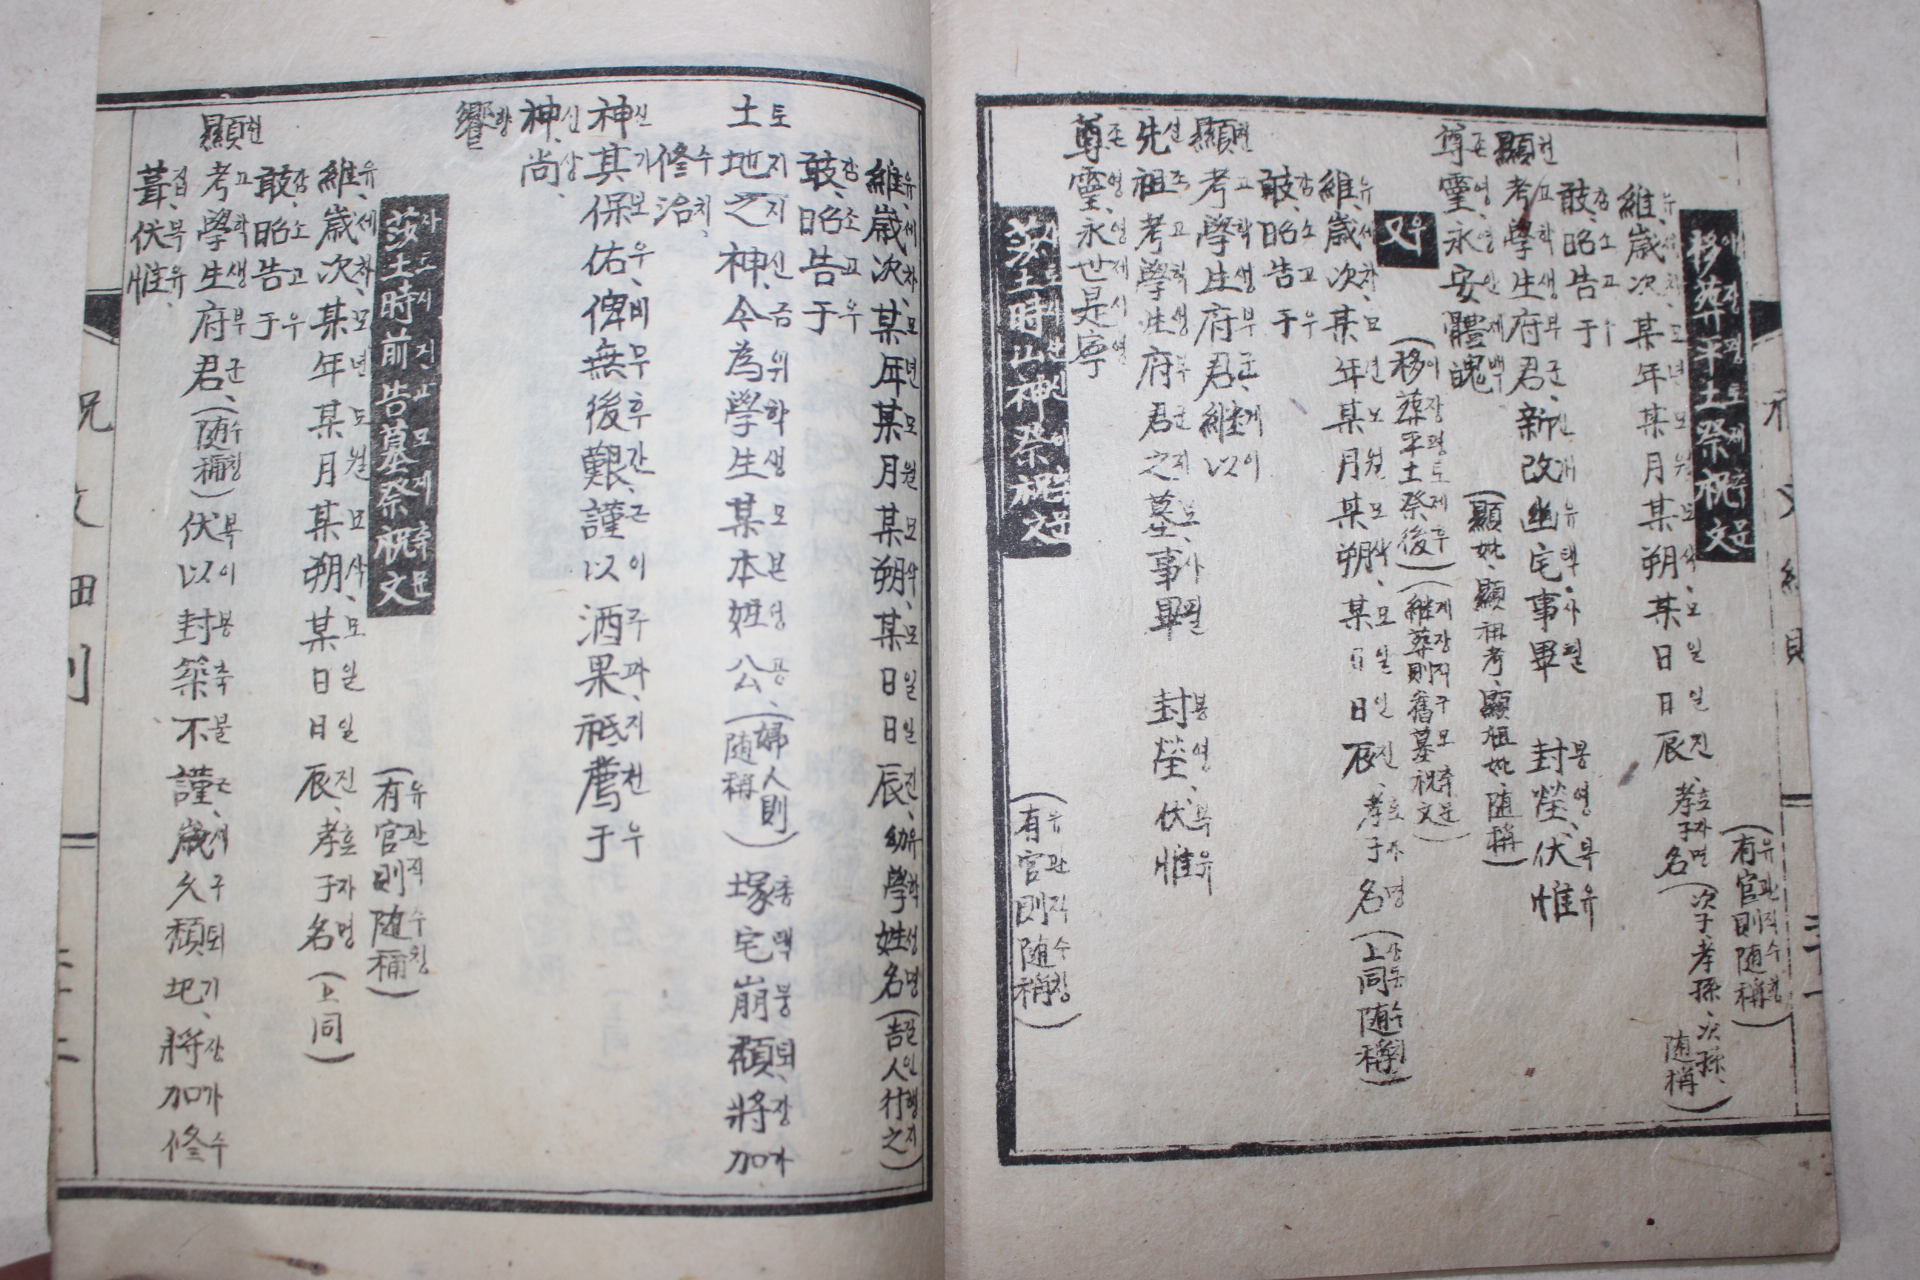 移葬平土祭祝文 이장평토제축문
(有官則隨稱) 유관직수칭
維歲次某年某月某朔某日日辰孝子名(次子孝孫次孫隨稱)
敢昭告于
顯考學生府君新改幽宅事畢封塋伏惟
(顯妣顯祖考顯祖妣隨稱)
尊靈永安體魄
又 우
(移葬平土祭後)(繼葬則舊墓祝文)
維歲次某年某月某朔某日日辰孝子名(上同隨稱)
敢昭告于
顯考學生府君繼以
先祖考學生府君之墓事畢封塋伏惟
尊靈永世是寧
莎土時山神祭祝文
(有官則隨稱) 유관직수칭
維歲次某年某月某朔某日日辰幼學姓名(吉人行之)
敢昭告于
土地之神今為學生某本姓公(婦人則隨稱)塚宅崩頹將加
修治
神其保佑俾無後艱謹以酒果祗薦于
神尚
饗
莎土時前告墓祭祝文
(有官則隨稱) 유관직수칭
維歲次某年某月某朔某日日辰孝子名(上同)
敢昭告于
顯考學生府君(隨稱)伏以封築不謹歲久頹圮將加修
葺伏惟
祝文細則